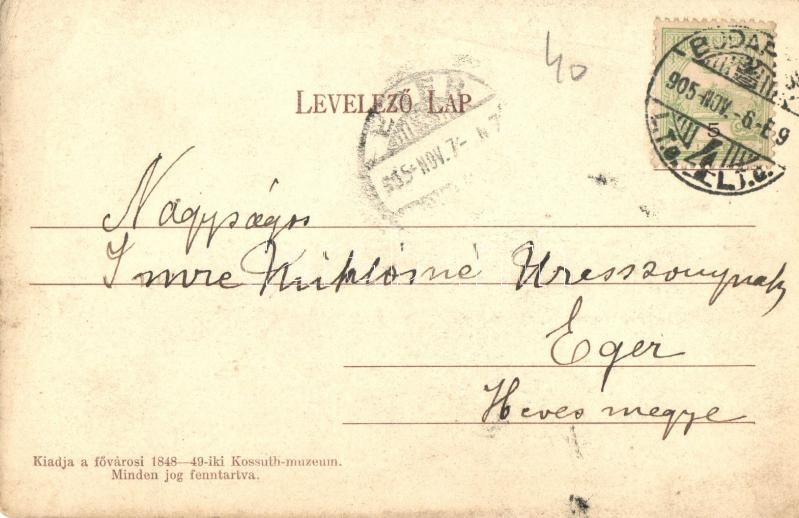 40
LEVELEZŐ LAP
EGER
905-NOV.7-
BUDAP
905-NOV.-6-E.9
5
Nagyságos
Imre Miklósné Uresszonynak
Eger
Heves megye
Kiadja a fővárosi 1848—49-iki Kossuth-muzeum.
Minden jog fenntartva.